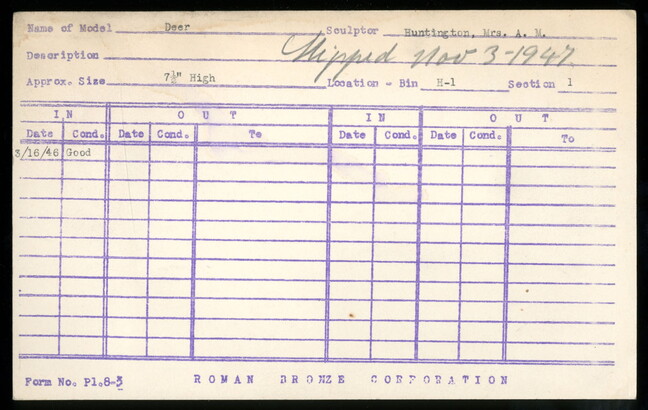 Name of Model Deer Sculptor Huntington, Mrs. A. M.
Shipped Nov 3-1947
Description
Approx. Size 7½" High Location - Bin H-1 Section 1
IN OUT IN OUT
Date Cond. Date Cond. To Date Cond. Date Cond. To
3/16/46 Good
Form No. Pl.8-3 ROMAN BRONZE CORPORATION